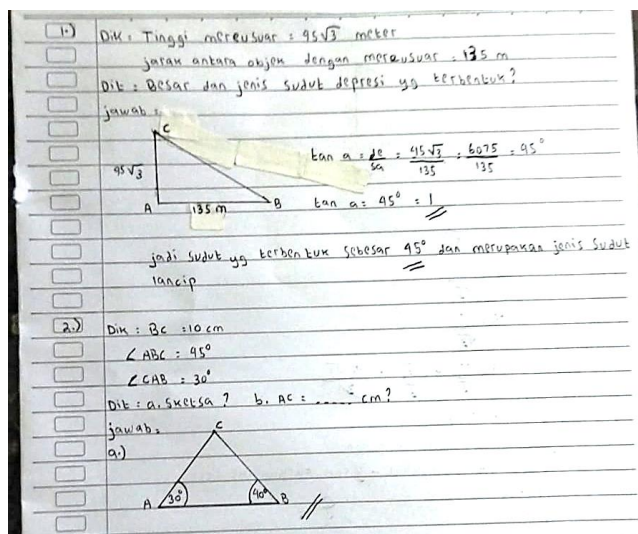 1.) Dik : Tinggi mercusuar = 45√3 meter
jarak antara objek dengan mercusuar = 135 m
Dit : Besar dan jenis sudut depresi yg terbentuk?
jawab :
C
45√3
A 135 m B
tan a = de/sa = 45√3/135 = 6075/135 = 45°
tan a = 45° = 1
jadi sudut yg terbentuk sebesar 45° dan merupakan jenis sudut
lancip
2.) Dik : BC = 10 cm
∠ABC = 45°
∠CAB = 30°
Dit : a. Sketsa ? b. AC = ..... cm?
jawab :
a.)
C
A 30° 40° B